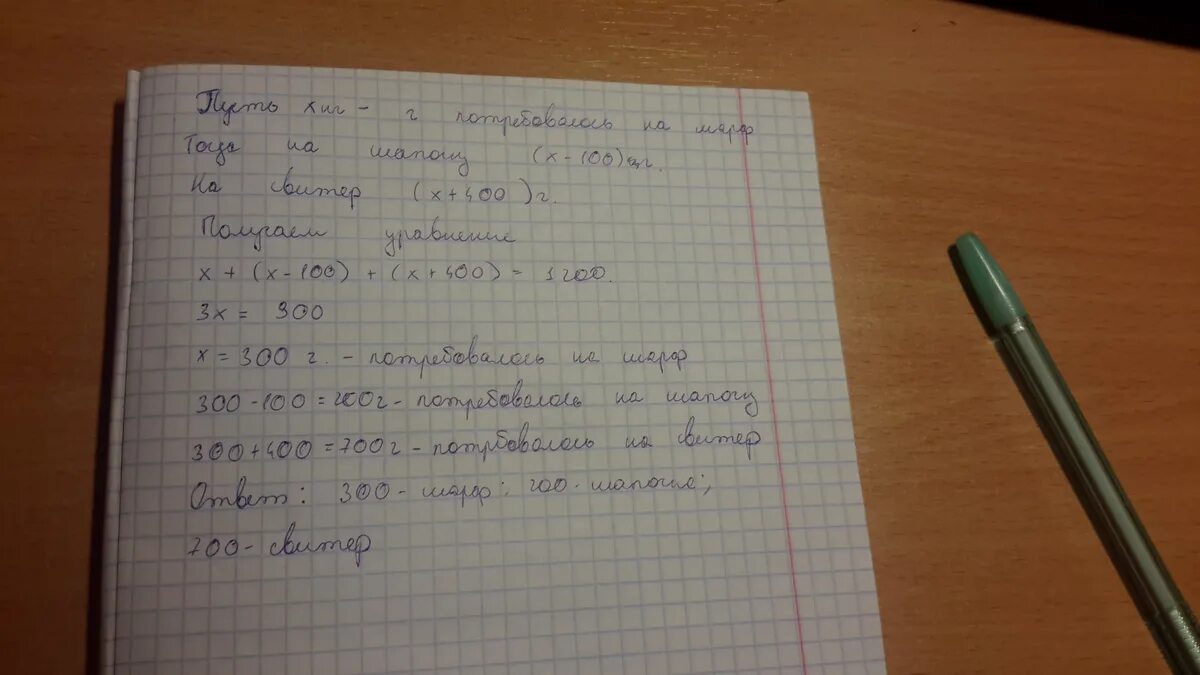 Пусть х - г потребовалось на шарф
Тогда на шапочку (х-100) г.
На свитер (х+400) г.
Получаем уравнение
х + (х-100) + (х+400) = 1200.
3х = 900
х = 300 г. - потребовалось на шарф
300-100=200г - потребовалось на шапочку
300+400=700г - потрбовалось на свитер
Ответ: 300 - шарф; 200 - шапочка;
700 - свитер